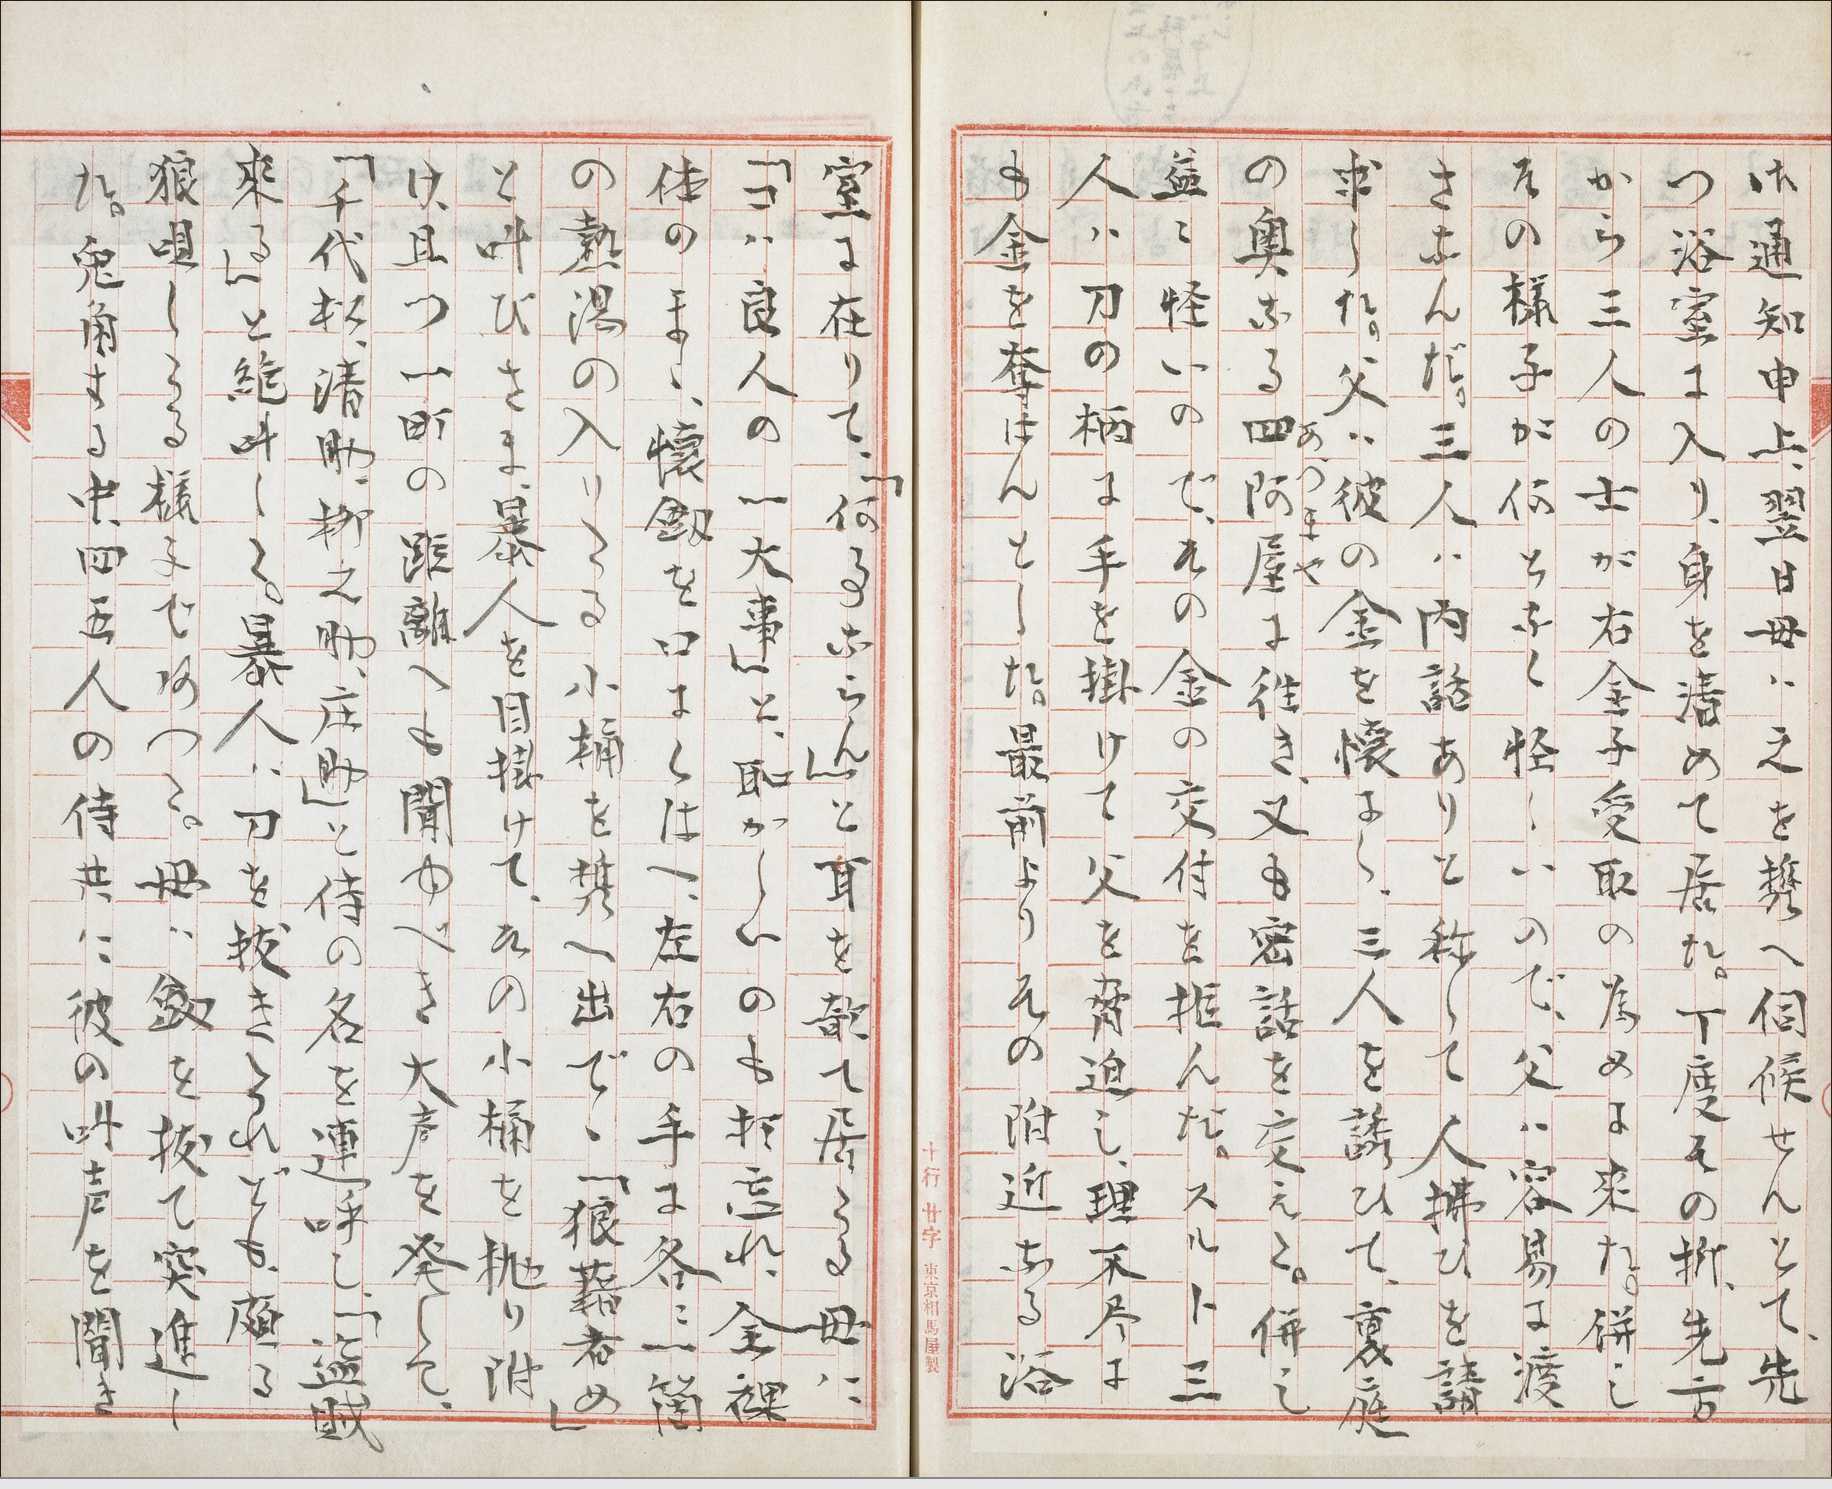 御通知申上、翌日母ハ之を携へ伺候せんとて、先
つ浴室に入り、身を清めて居た。丁度その折、先方
から三人の士が右金子受取の為めに来た。併し
その様子が何となく怪しいので、父ハ容易に渡
さなんだ。三人ハ内話ありと称して人払ひを請
求した。父ハ彼の金を懐にし、三人を誘ひて、裏庭
の奥なる四阿屋に往き、又も密話を交えた。併し
あづまや
益〻怪いので、その金の交付を拒んだ。スルト三
人ハ刀の柄に手を掛けて父を脅迫し、理不尽に
も金を奪はんとした。最前よりその附近なる浴
室に在りて、「何事ならん」と耳を敧て居たる母ハ
「コハ良人の一大事」と、恥かしいのも打忘れ、全裸
体のまゝ、懐劔を口にくはへ、左右の手に各〻一箇
の熱湯の入りたる小桶を携へ出で、「狼藉者め」
と叫びさま、暴人を目掛けて、その小桶を抛り附
け、且つ一町の距離へも聞ゆべき大声を発して、
「千代松、清助、柳之助、庄助」と侍の名を連呼し、「盗賊
来る」と絶叫した。暴人ハ刀を抜きたれども、頗る
狼狽したる様子であつた。母ハ劔を抜て突進し
た。兎角する中、四五人の侍共ハ彼の叫声を聞き
十行 廿字 東京相馬屋製